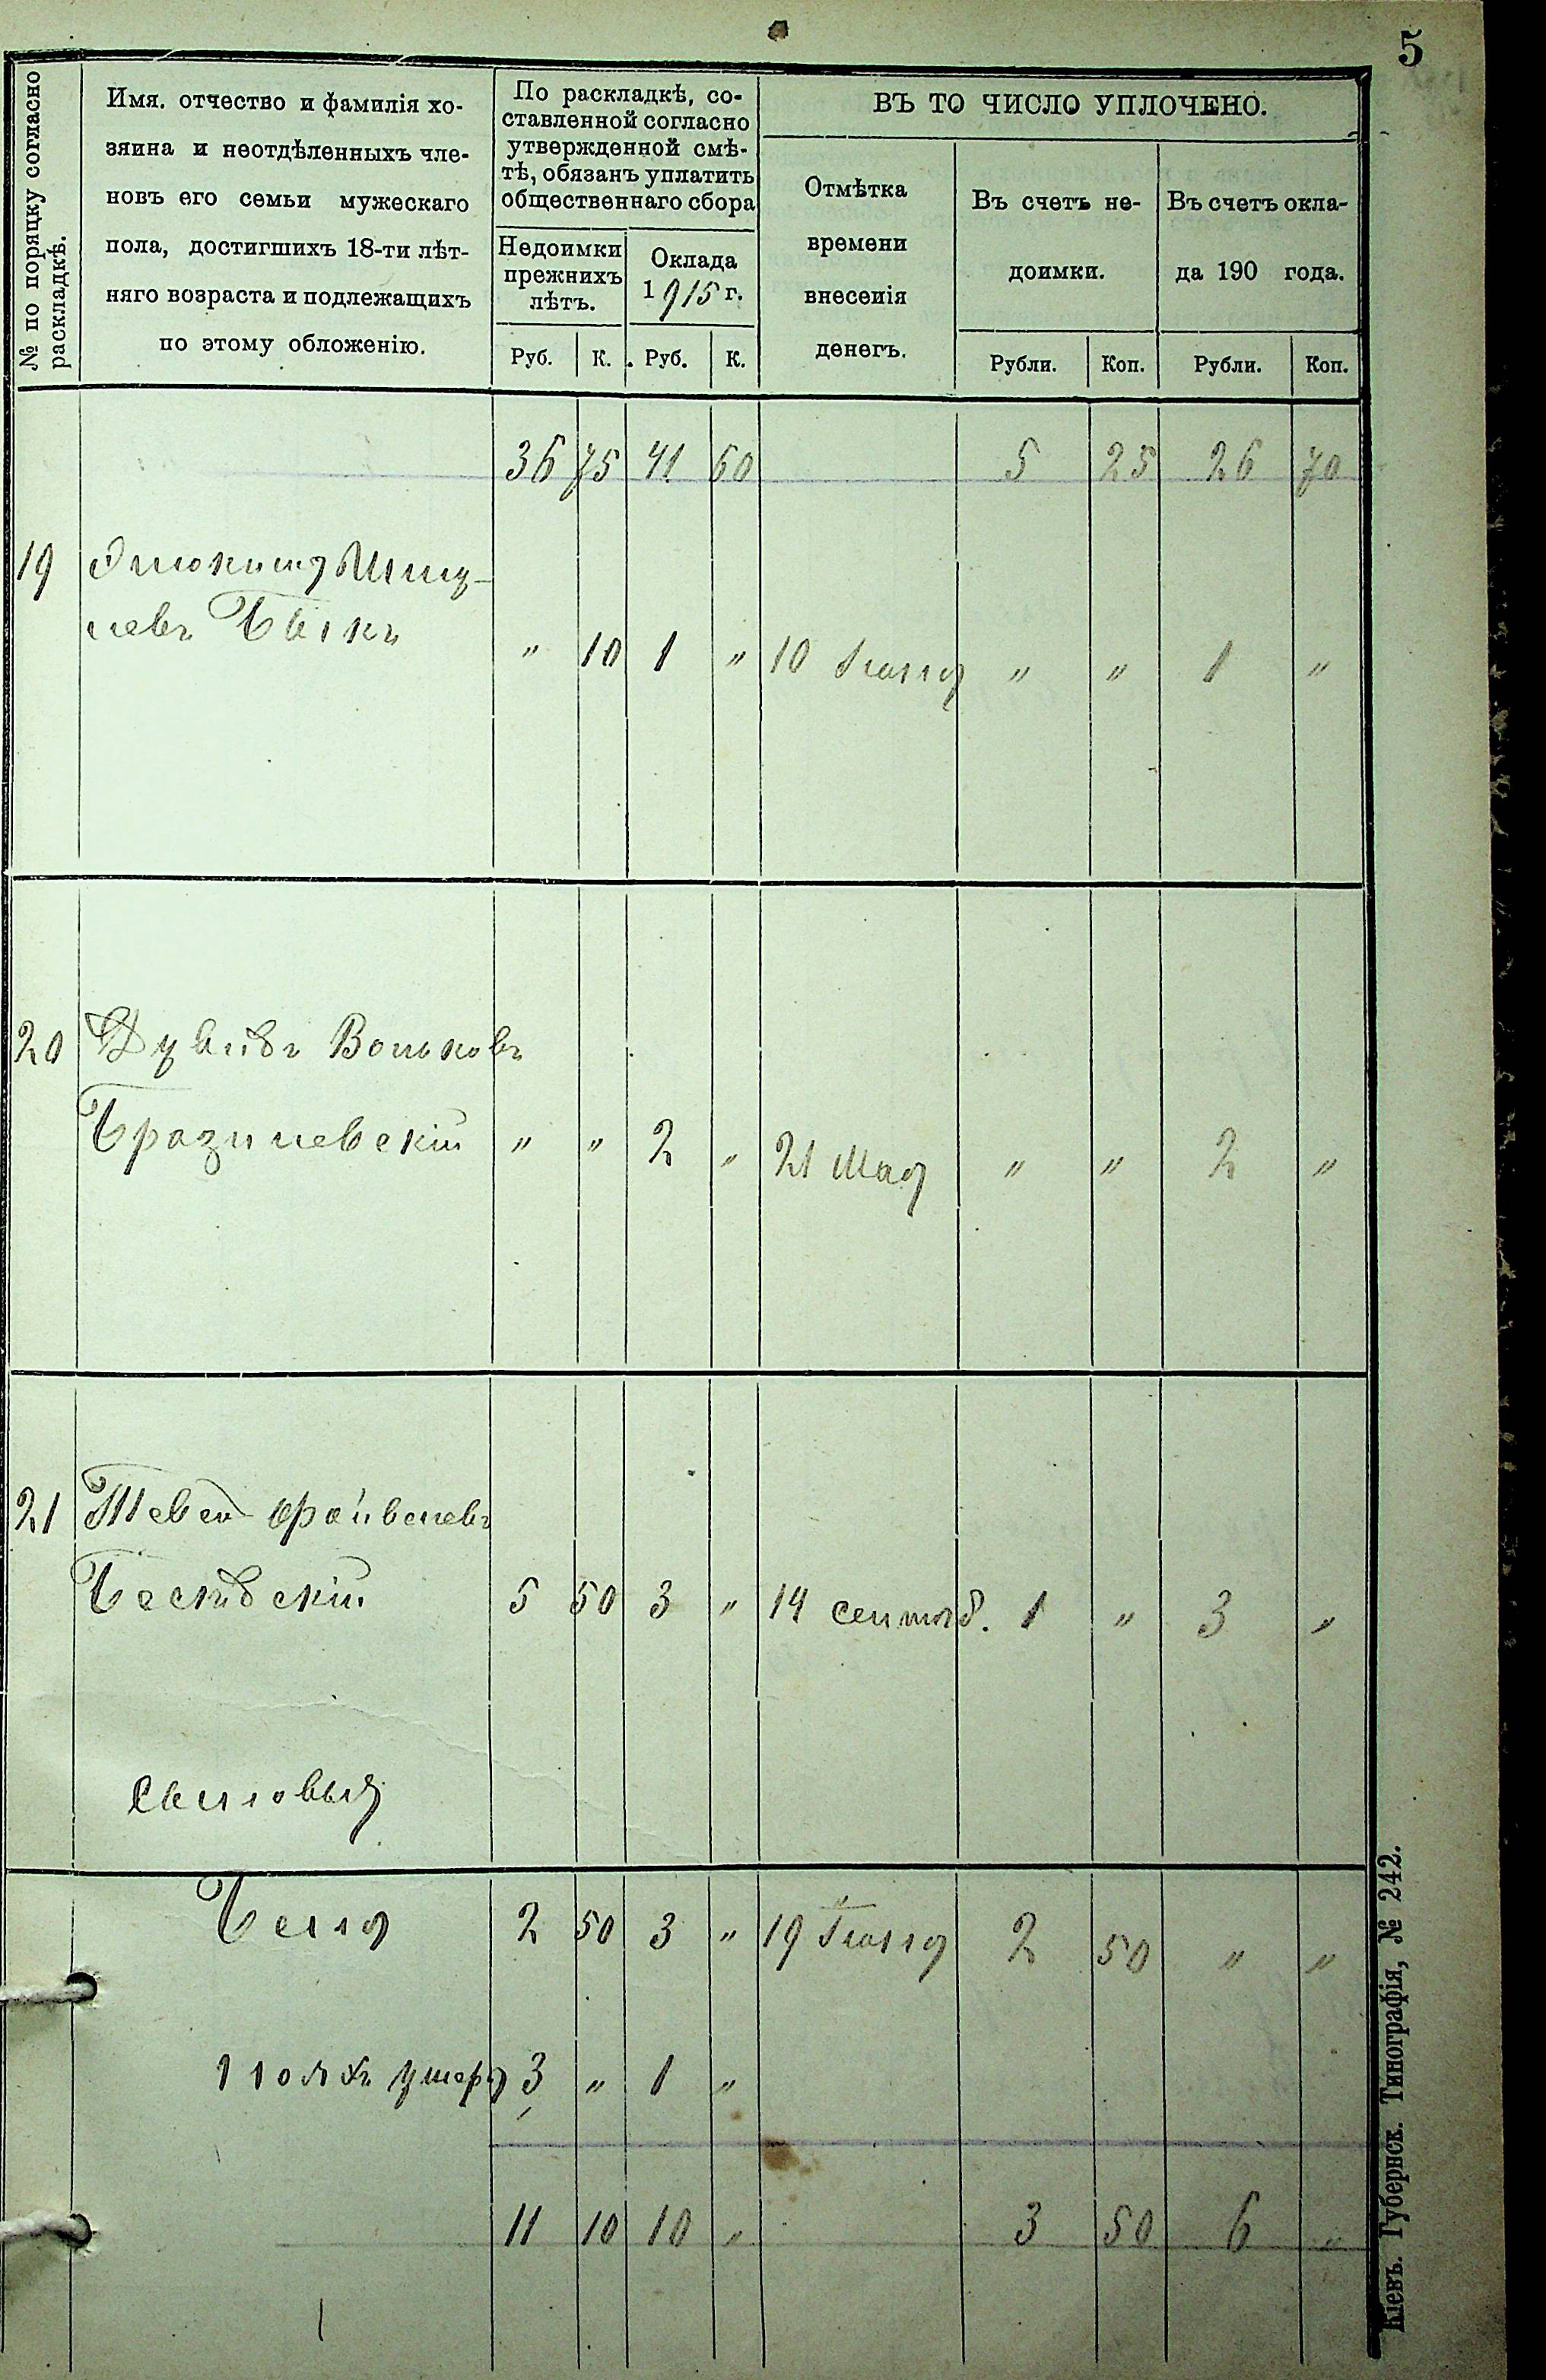 5
№ по поряцку согласно
раскладкѣ.
Имя. отчество и фамилія хо-
зяина и неотдѣленныхъ чле-
новъ его семьи мужескаго
пола, достигшихъ 18-ти лѣт-
няго возраста и подлежащихъ
по этому обложенію.
По раскладкѣ, со-
ставленной согласно
утвержденной смѣ-
тѣ, обязанъ уплатить
общественнаго сбора
Недоимки
прежнихъ
лѣтъ.
Руб. К.
Оклада
1915 г.
Руб. К.
ВЪ ТО ЧИСЛО УПЛОЧЕНО.
Отмѣтка
времени
внесенія
денегъ.
Въ счетъ не-
доимки.
Рубли. Коп.
Въ счетъ окла-
да 190 года.
Рубли. Коп.
36 75 41 60 5 25 26 70
19
левъ Бѣкъ
" 10 1 " 10 " " 1 "
20 Дувидъ Вольковъ
Бразилевскій " " 2 " 21 Мая " " 2 "
21 Шевел Файвелевъ
Бесидскій 5 50 3 " 14 сентяб. 1 " 3 "
Сыновья
2 50 3 " 19 2 50 " "
3 " 1 "
11 10 10 " 3 50 6 "
Кіевъ. Губернск. Типографія, № 242.